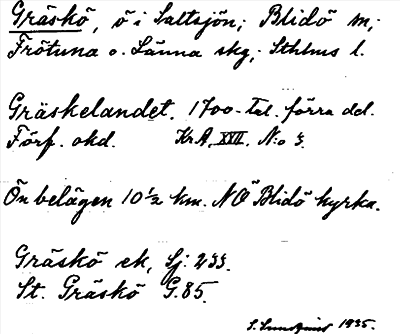 Gräskö, ö i Saltsjön; Blidö sn;
Frötuna o. Länna skg; Sthlms l.
Gräskelandet. 1700-tal. förra del.
Förf. okd. KrA. XVII. N:o 3.
Ön belägen 10 1/2 km. NÖ Blidö kyrka.
Gräskö ek, Sj: 233.
St. Gräskö G.85.
S. Lundqvist 1935.